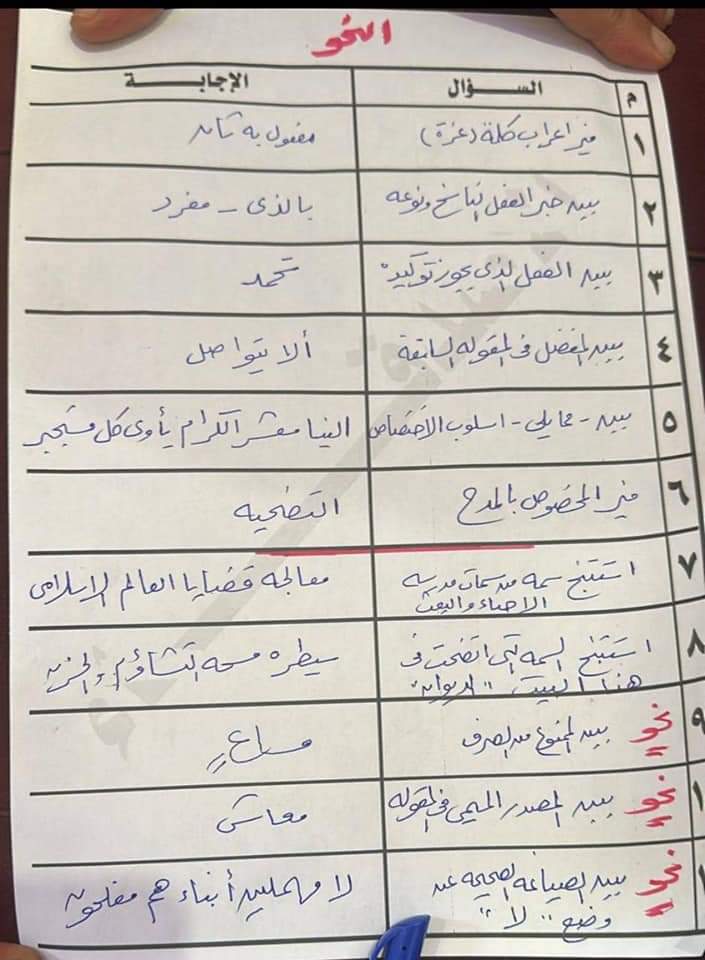 النحو
م السؤال الإجابة
١ ميز اعراب كلمة (غزة) مفعول به ثان
٢ بين خبر الفعل الناسخ ونوعه بالذى - مفرد
٣ بين الفعل الذى يجوز توكيده تحمد
٤ بين المفضل فى المقوله السابقة ألا يتواصل
٥ بين - مما يلى - اسلوب الاختصاص الينا معشر الكرام يأوى كل مستجير
٦ ميز المخصوص بالمدح التضحيه
٧ استنتج سمه من سمات مدرسه معالجه قضايا العالم الإسلامى
الاحياء والبعث
٨ استنتج السمه التى اتضحت فى سيطره مسحه التشاؤم والحزن
هذا البيت "الديوان"
٩ نحو بين الممنوع من الصرف مساعٍ
١ نحو بين المصدر الميمى فى المقوله معاشى
١ نحو بين الصياغه الصحيحه عند لا مهملين أبناءهم مفلحون
وضع " لا "